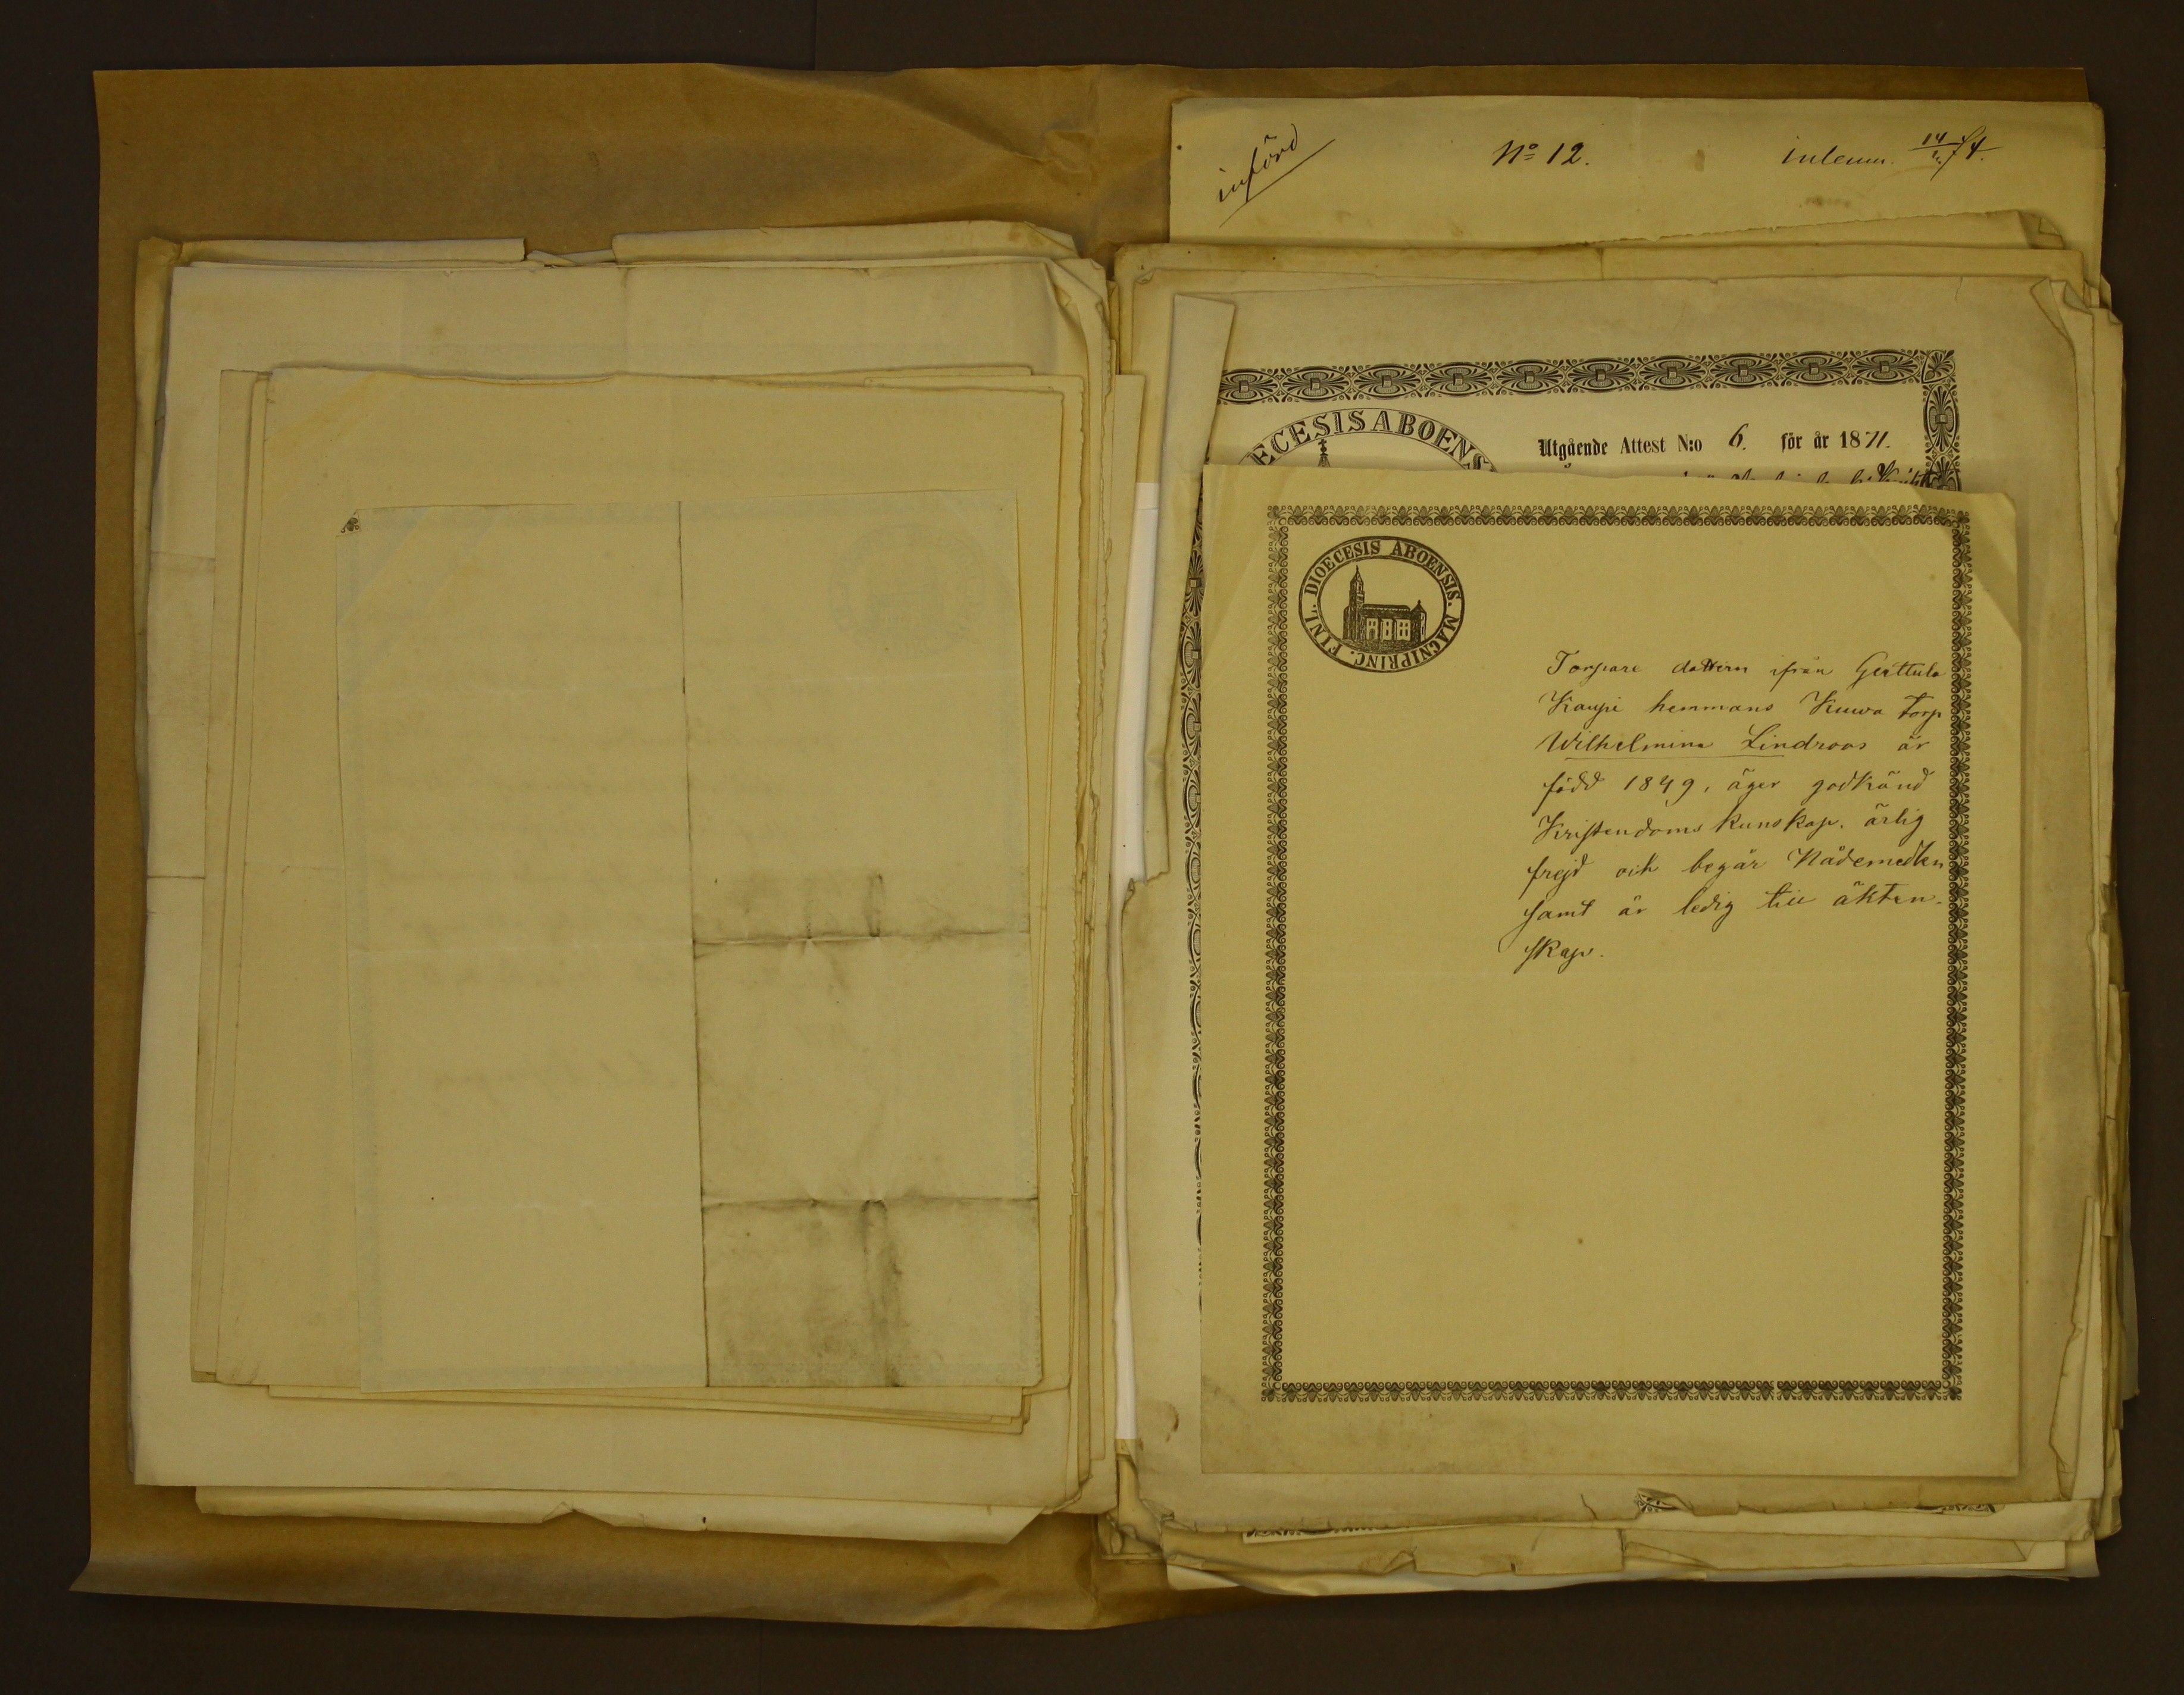 införd
No 12.
inlemn. 14/
ECESIS ABOENS
Utgående Attest N:o 6. för år 1871.
DIOECESIS ABOENSIS. MAGNIPRINC. FINL.
Torpare dottern ifrån Gerttula
Kaupi hemmans Kuwa torp
Wilhelmina Lindroos är
född 1849, äger godkänd
Kristendoms kunskap, ärlig
frejd och begär Nådemedlen
samt är ledig till äkten-
skap.